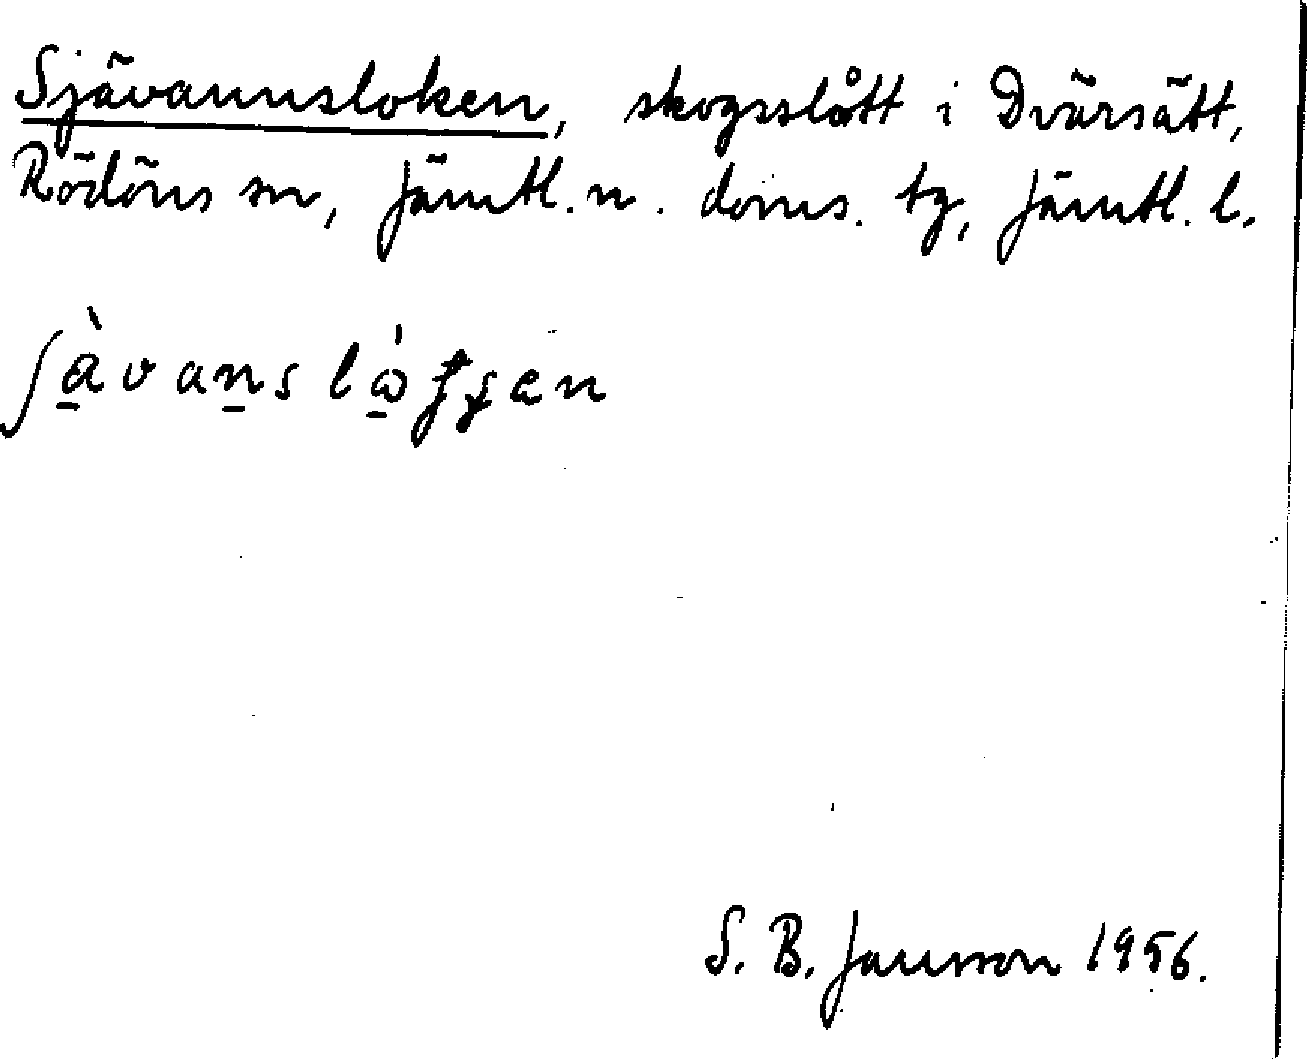 Sjävannsloken, skogsslått i Dvärsätt,
Rödöns sn, Jämtl. n. doms. tg, Jämtl. l.
S. B. Jansson 1956.